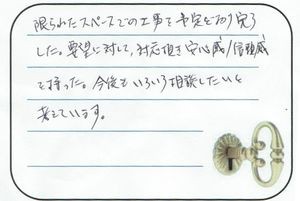 限られたスペースでの工事を予定とおり完了
した。要望に対して、対応頂き安心感/信頼感
を持った。今後もいろいろ相談したいと
考えています。